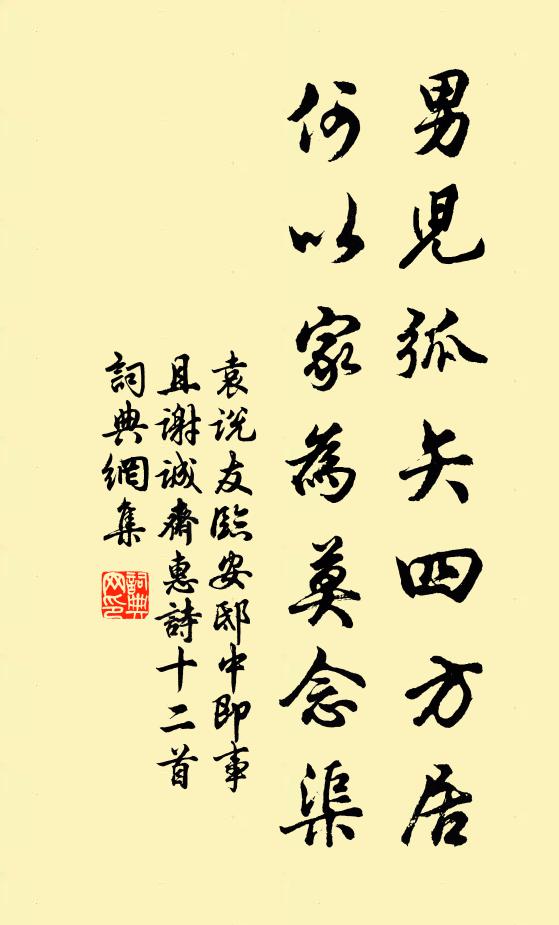 男兒弧矢四方居
何以家為莫念渠
袁说友臨安邸中即事
且谢诚齋惠詩十二首
詞典網集
詞典网印